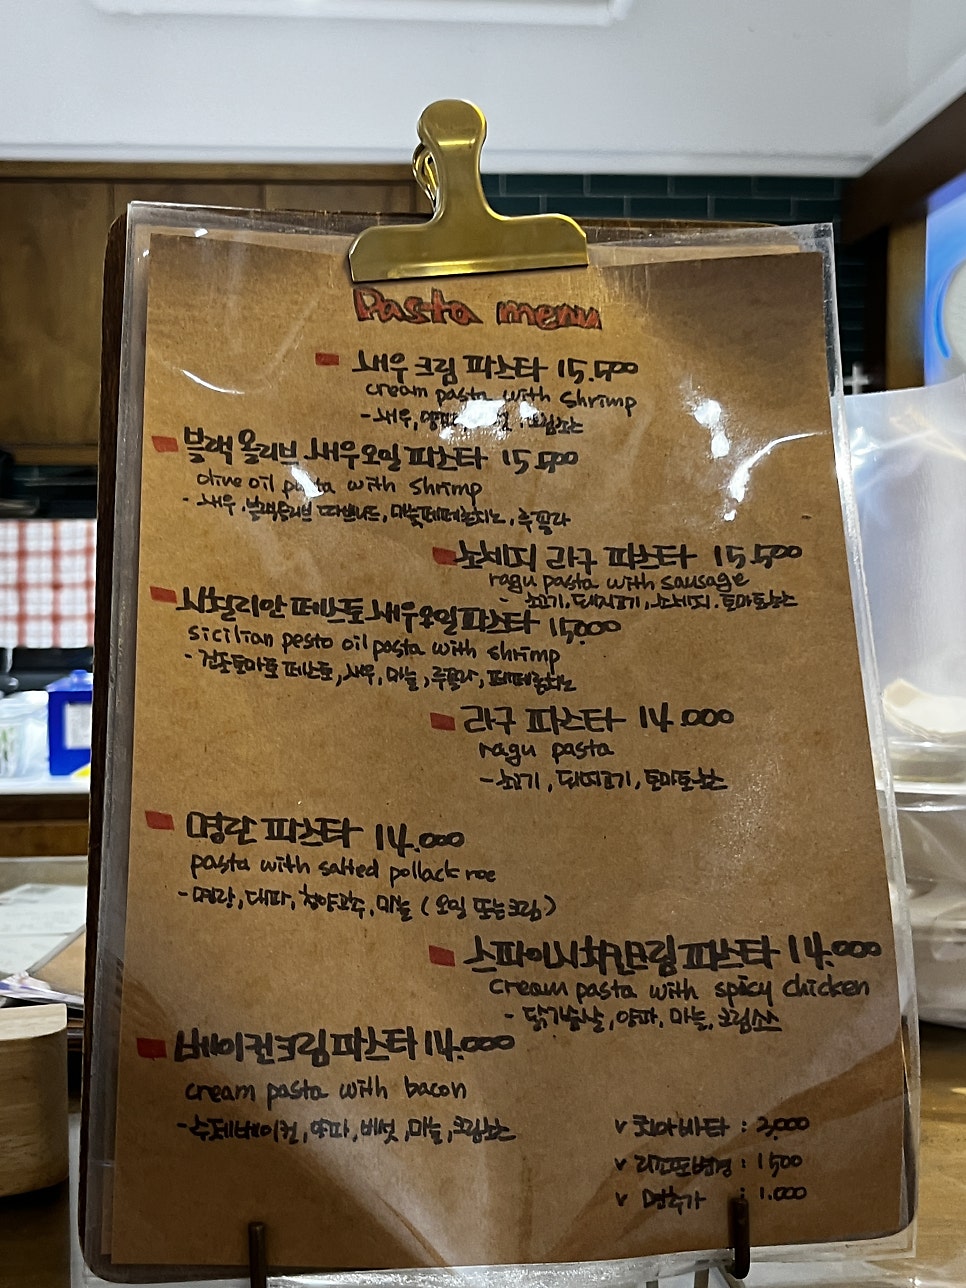 Pasta menu
새우 크림 파스타 15.500
cream pasta with shrimp
- 새우, 크림소스
블랙올리브 새우오일 파스타 15.500
olive oil pasta with shrimp
- 새우, 블랙올리브 마늘페페론치노, 루꼴라
소세지 라구 파스타 15.500
ragu pasta with sausage
- 소고기, 돼지고기, 소세지, 토마토소스
시칠리안 페스토 새우오일파스타 15.000
sicilian pesto oil pasta with shrimp
- 건조토마토 페스토, 새우, 마늘, 루꼴라, 페페론치노
라구 파스타 14.000
ragu pasta
- 소고기, 돼지고기, 토마토소스
명란 파스타 14.000
pasta with salted pollack roe
- 명란, 대파, 청양고추, 마늘 (오일 또는 크림)
스파이시치킨크림 파스타 14.000
cream pasta with spicy chicken
- 닭가슴살, 양파, 마늘, 크림소스
베이컨크림파스타 14.000
cream pasta with bacon
- 수제베이컨, 양파, 버섯, 마늘, 크림소스
v 치아바타 : 2,000
v 리조또변경 : 1500
v 면추가 : 1.000